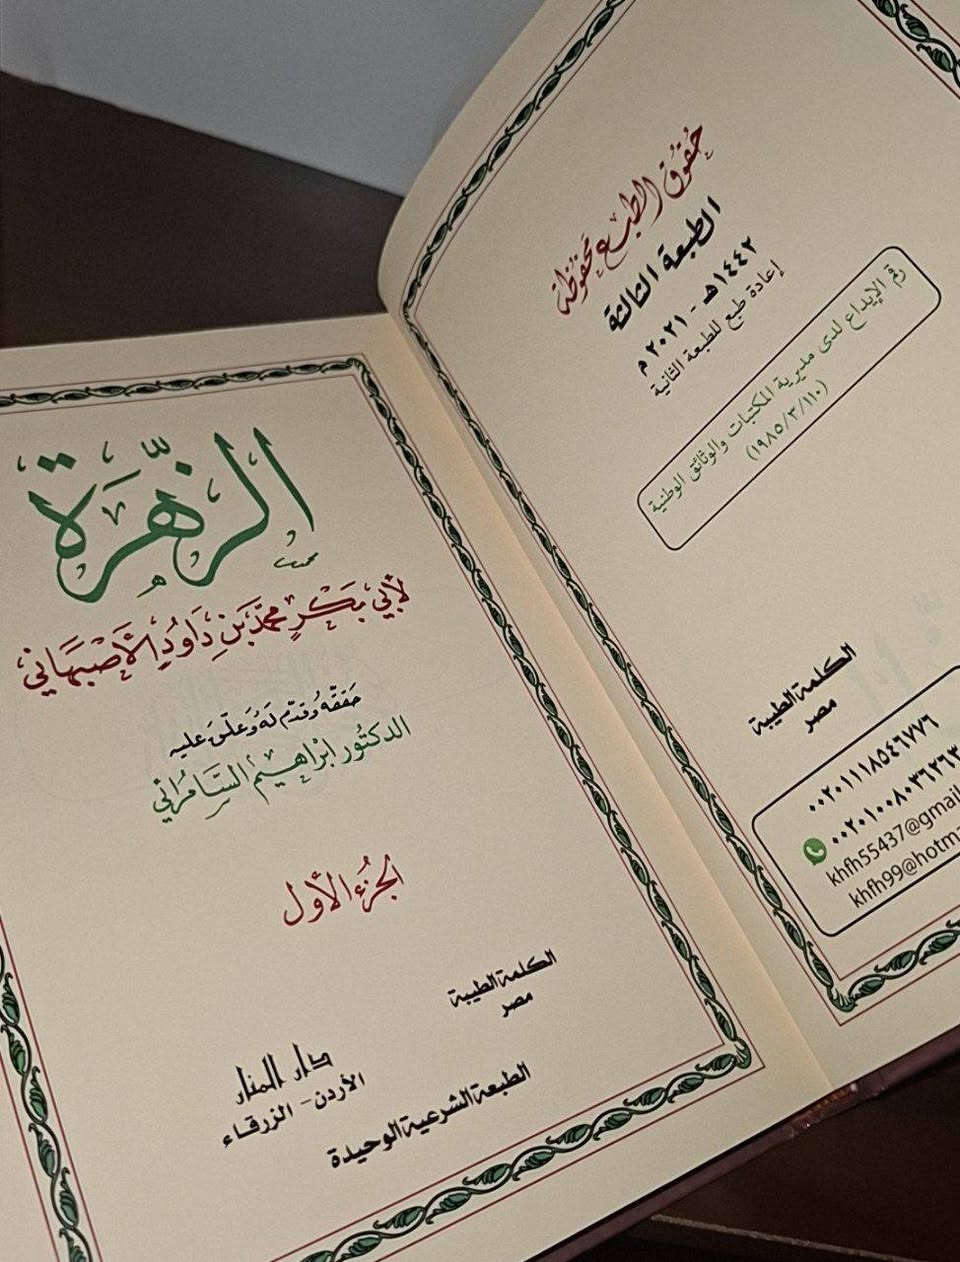 حقوق الطبع محفوظة
الطبعة الثالثة
١٤٤٢هـ - ٢٠٢١ م
إعادة طبع للطبعة الثانية
رقم الإيداع لدى مديرية المكتبات والوثائق الوطنية
(١٩٨٥/٣/١١٠)
الكلمة الطيبة
مصر
٠٠٢٠١١١٨٥٤٦٧٧٦
٠٠٢٠١٠٠٨٠٣٦٢٦٣
khfh55437@gmail
khfh99@hotma
الزَّهرَة
لأبي بكرٍ محمّد بن داود الأصبهاني
حققه وقدّم له وعلّق عليه
الدكتور ابراهيم السّامرائي
الجزء الأول
الكلمة الطيبة
مصر
دار المنار
الأردن - الزرقاء
الطبعة الشرعية الوحيدة